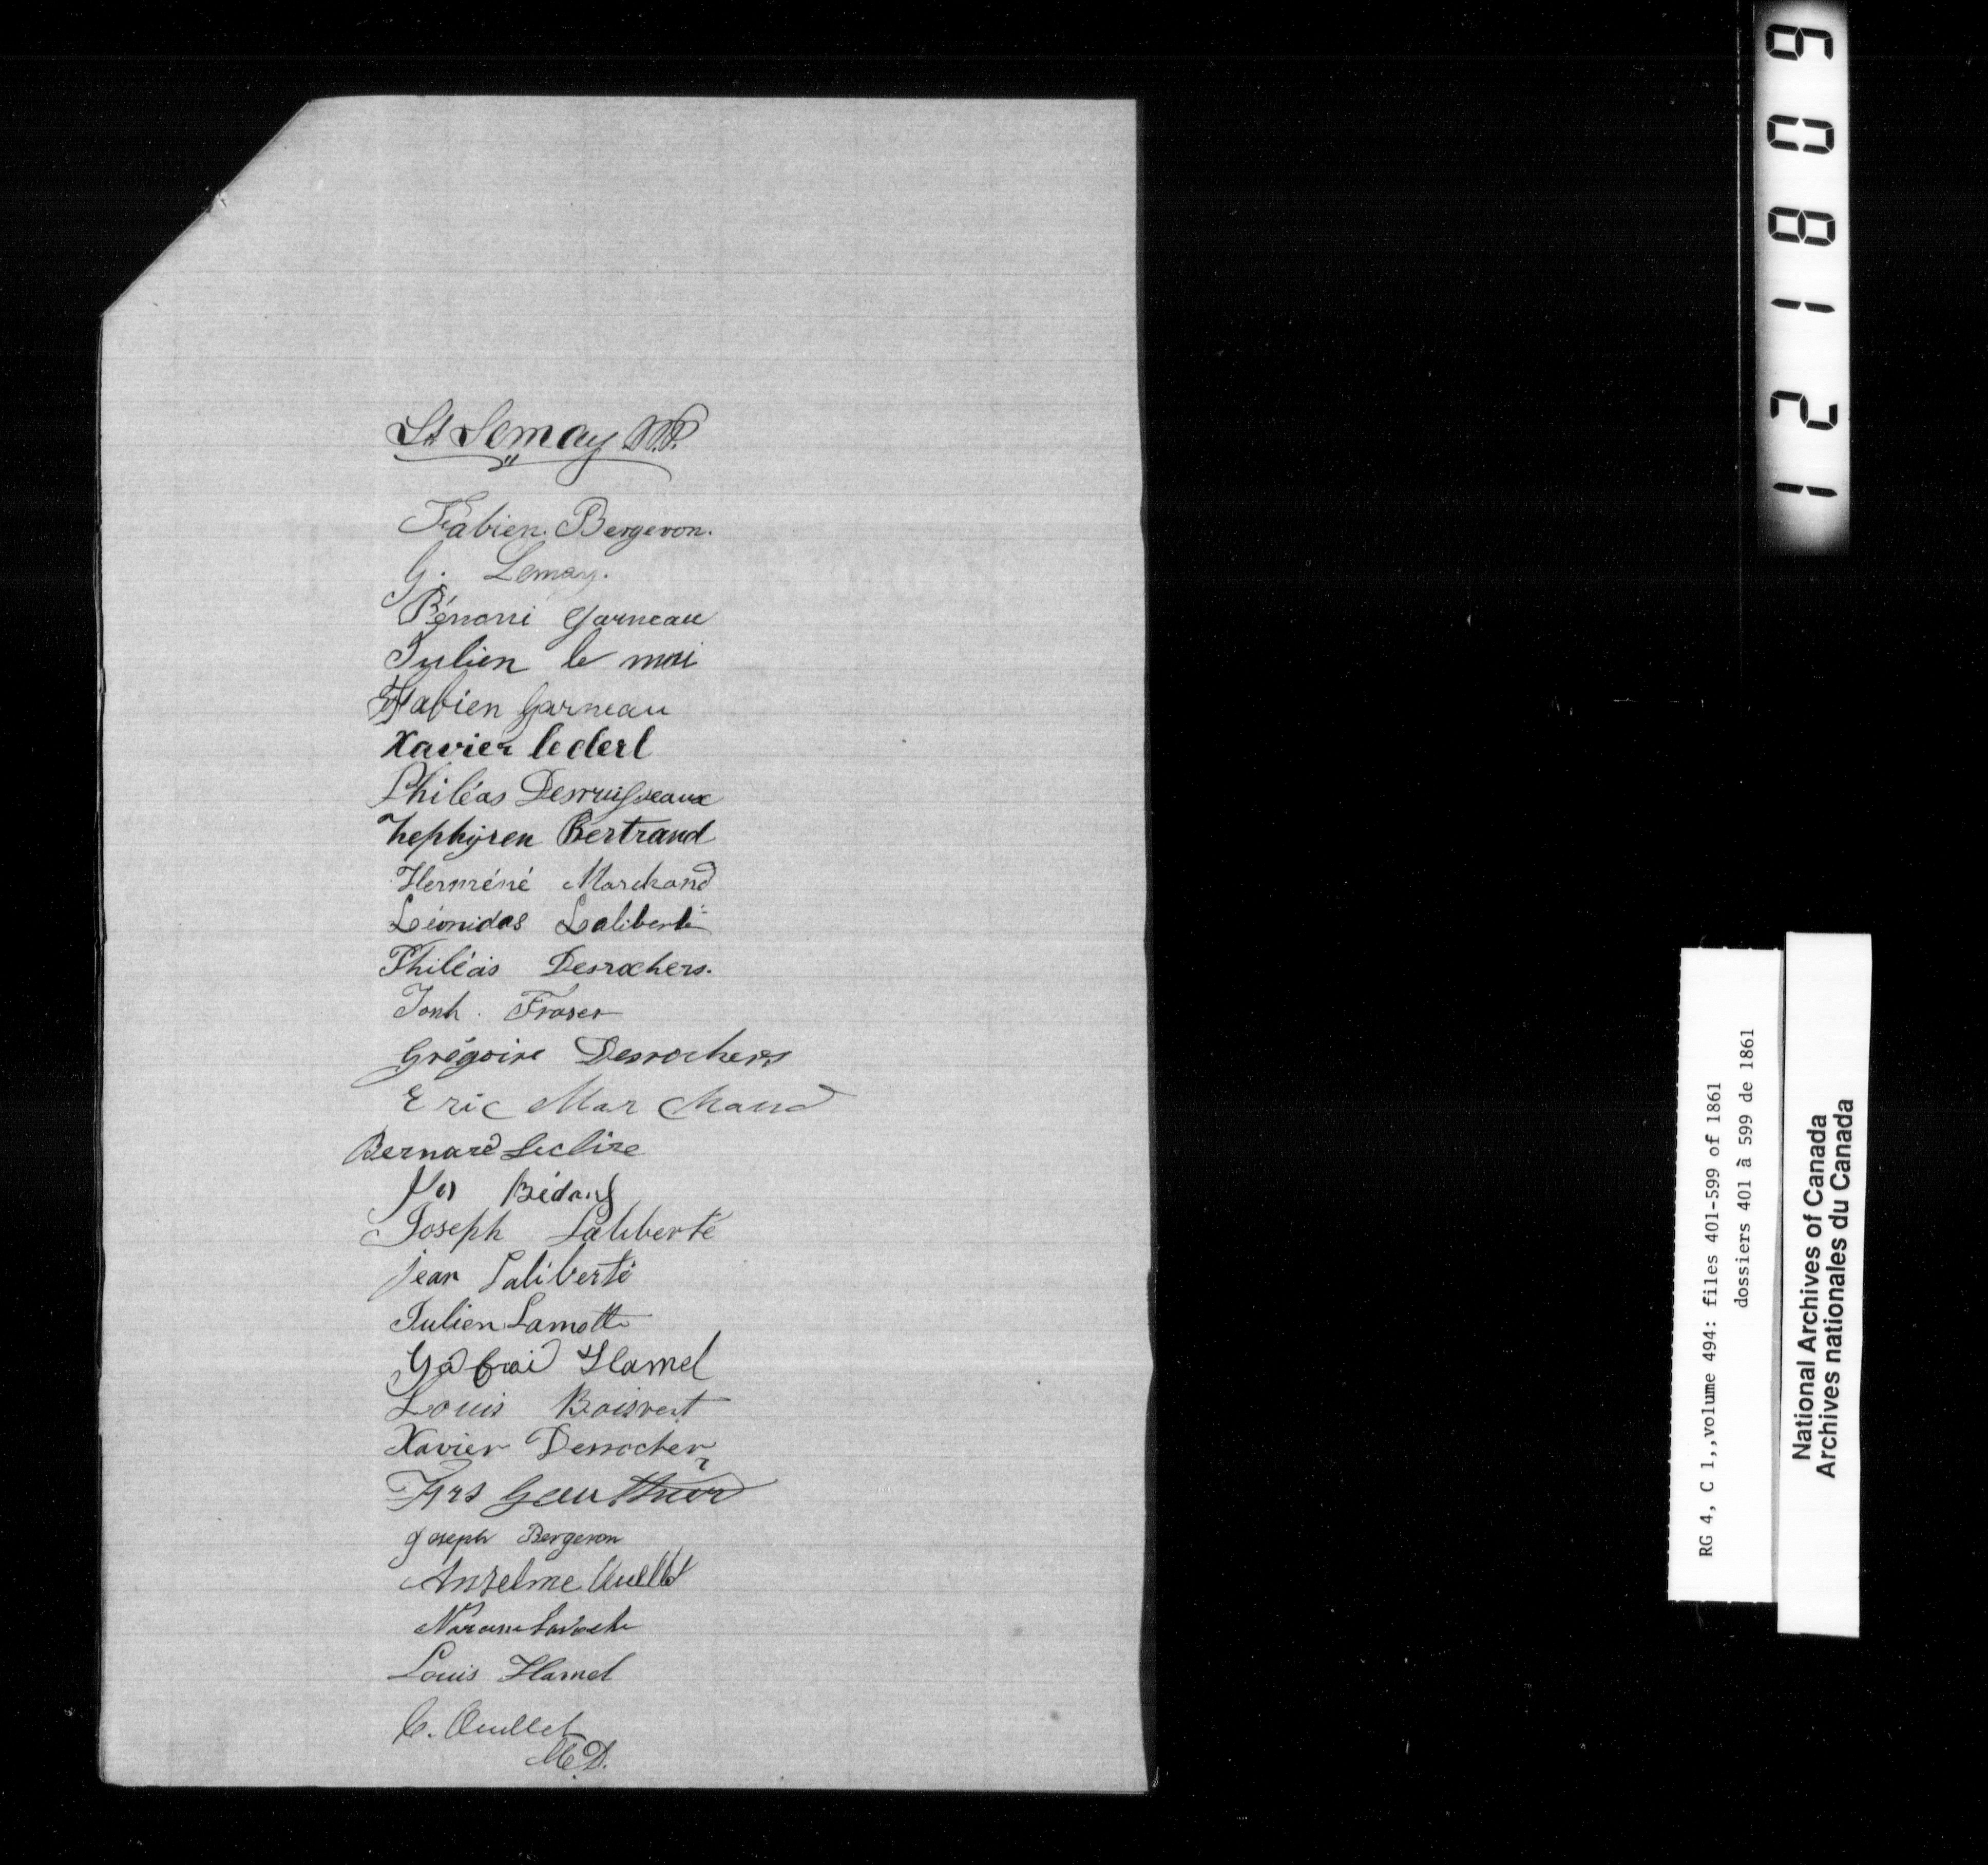 Lt Lemay M.P.
Fabien Bergeron.
G. Lemay.
Bénoni Garneau
Julien le mai
Fabien Garneau
Xavier leclerl
Philéas Desruisseaux
Zephyren Bertrand
Herméné Marchand
Léonidas Laliberté
Philéas Desrochers.
Jonh. Fraser
Grégoire Desrochers
Eric Mar Chand
Bernard Leclire
Bédard
Joseph Laliberté
jean Laliberté
Julien Lamotte
Hamel
Louis Boisvert
Xavier Desrochers
Frs Gauthier
Joseph Bergeron
Anselme Ouellet
Narcisse
Louis Hamel
C. Ouellet
M.D.
121809
RG 4, C 1,,volume 494: files 401-599 of 1861
dossiers 401 à 599 de 1861
National Archives of Canada
Archives nationales du Canada